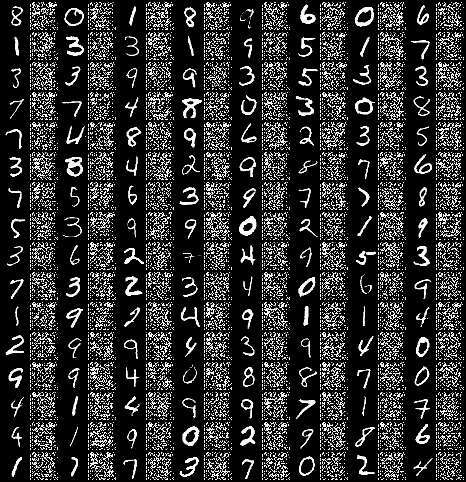 8 0 1 8 9 6 0 6
1 3 3 1 9 5 1 7
3 3 9 9 3 5 3 3
7 7 4 8 0 3 0 8
7 4 8 9 6 2 3 5
3 8 4 2 9 8 7 6
7 5 6 3 9 7 7 8
5 3 9 9 0 2 1 9
3 6 2 7 4 9 5 3
7 3 2 3 4 0 6 9
1 9 2 4 9 1 1 4
2 9 9 4 3 9 4 0
9 9 4 0 8 8 7 0
4 1 4 9 9 7 1 7
4 1 9 0 2 9 8 6
1 1 7 3 7 0 2 4